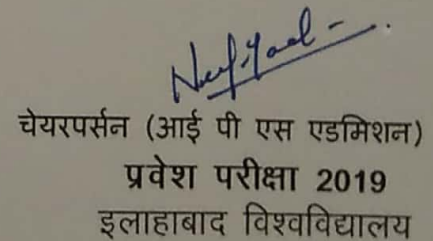 चेयरपर्सन (आई पी एस एडमिशन)
प्रवेश परीक्षा 2019
इलाहाबाद विश्वविद्यालय